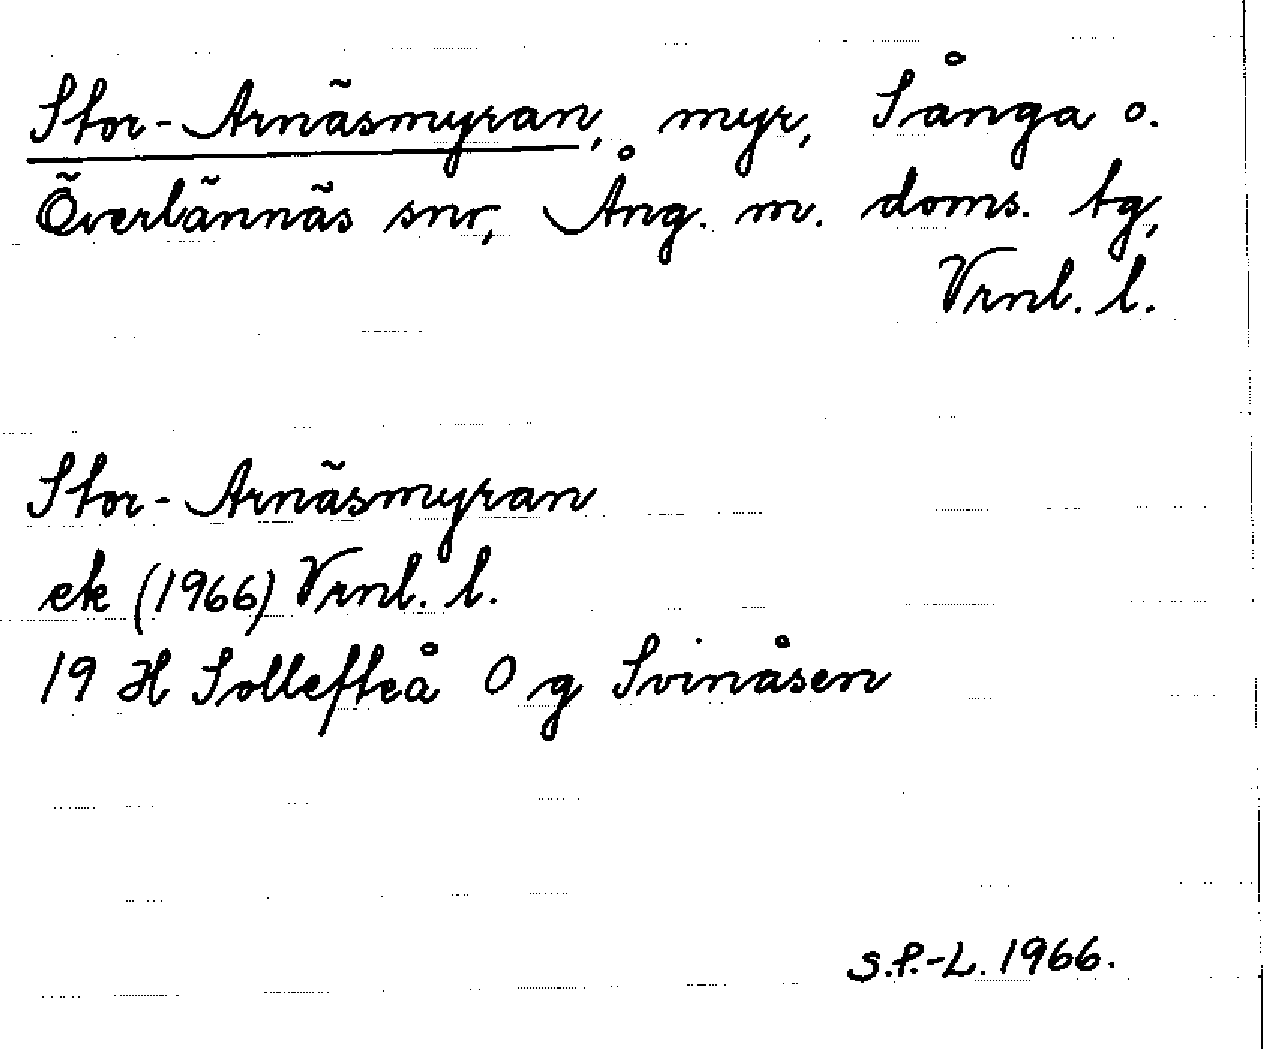 Stor-Arnäsmyran, myr, Sånga o.
Överlännäs snr, Ång. m. doms. tg,
Vrnl. l.
Stor-Arnäsmyran
ek (1966) Vrnl. l.
19 H Sollefteå O g Svinåsen
S.P.-L. 1966.